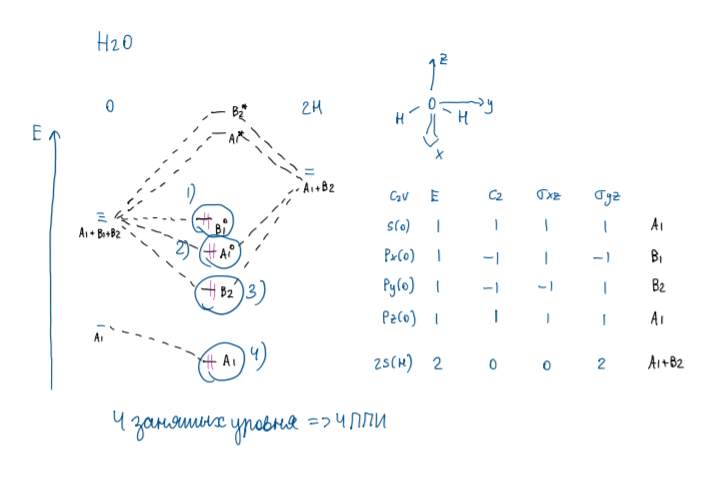 H2O
O
2H
E
B2*
A1*
A1+B2
1)
B1°
A1+B1+B2
2)
A1°
B2
3)
A1
A1
4)
z
H
O
H
y
x
C2v E C2 σxz σyz
S(O) 1 1 1 1 A1
Px(O) 1 -1 1 -1 B1
Py(O) 1 -1 -1 1 B2
Pz(O) 1 1 1 1 A1
2S(H) 2 0 0 2 A1+B2
4 занятых уровня => 4 ППИ